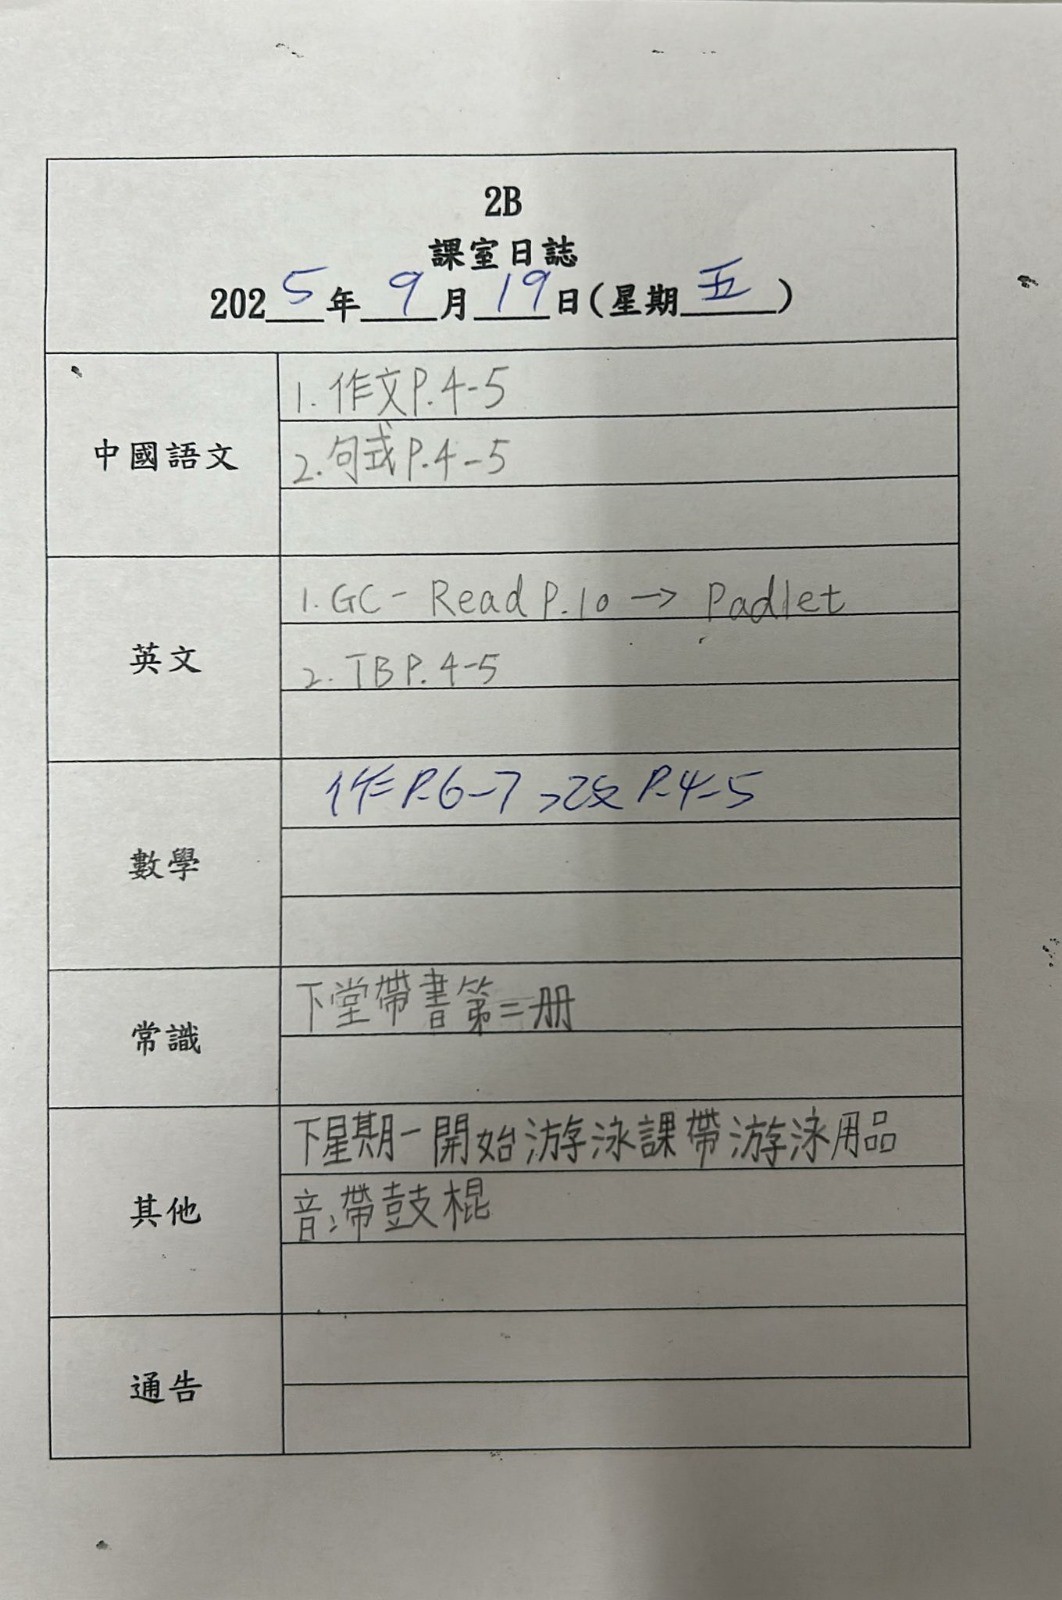 2B
課室日誌
2025年9月19日(星期五)
中國語文
1. 作文P.4-5
2. 句式P.4-5
英文
1. GC - Read P.10 → Padlet
2. TB P.4-5
數學
作P.6-7、改P.4-5
常識
下堂帶書第二册
其他
下星期一開始游泳課帶游泳用品
音:帶鼓棍
通告